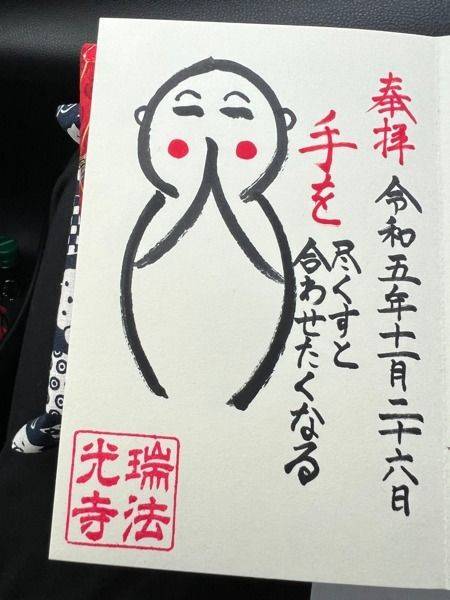 奉拝
令和五年十一月二十六日
手を
尽くすと
合わせたくなる
瑞法
光寺